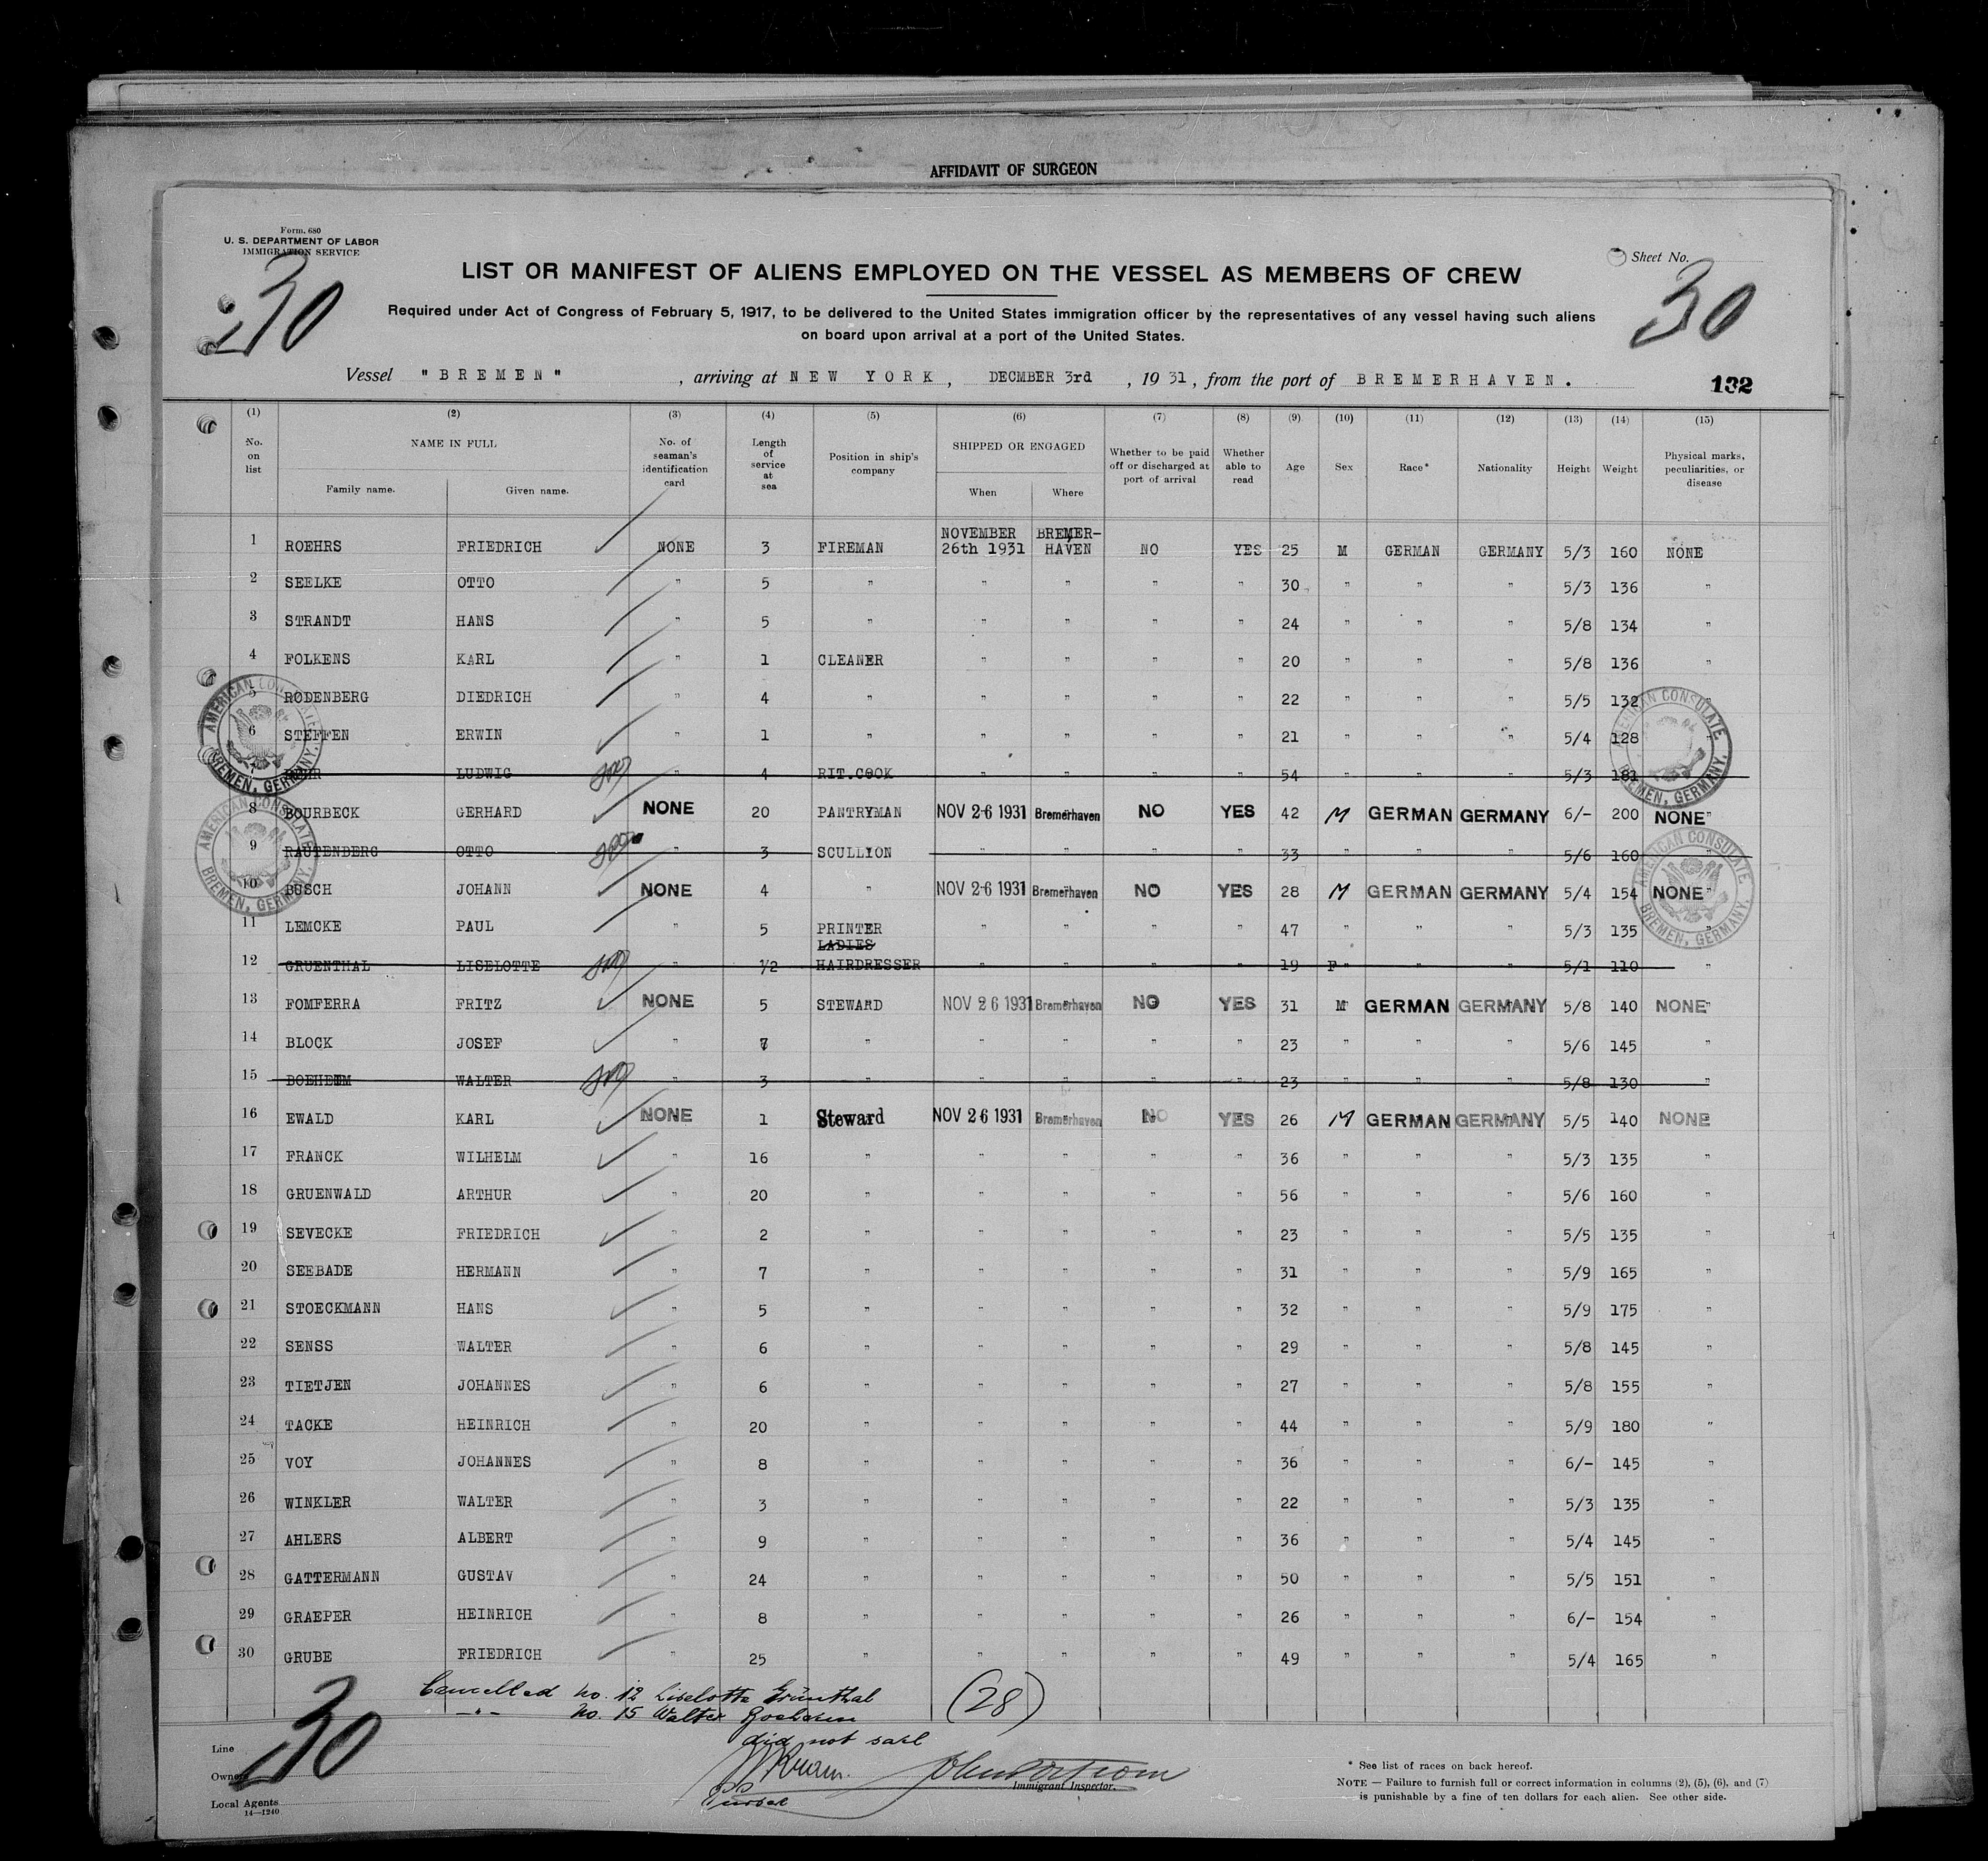 AFFIDAVIT OF SURGEON
Form. 680
U. S. DEPARTMENT OF LABOR
IMMIGRATION SERVICE
Sheet No.
30
30
LIST OR MANIFEST OF ALIENS EMPLOYED ON THE VESSEL AS MEMBERS OF CREW
Required under Act of Congress of February 5, 1917, to be delivered to the United States immigration officer by the representatives of any vessel having such aliens
on board upon arrival at a port of the United States.
Vessel "BREMEN", arriving at NEW YORK, DECMBER 3rd, 1931, from the port of BREMERHAVEN.
132
(1) (2) (3) (4) (5) (6) (7) (8) (9) (10) (11) (12) (13) (14) (15)
No. on list NAME IN FULL Family name. Given name. No. of seaman's identification card Length of service at sea Position in ship's company SHIPPED OR ENGAGED When Where Whether to be paid off or discharged at port of arrival Whether able to read Age Sex Race* Nationality Height Weight Physical marks, peculiarities, or disease
1 ROEHRS FRIEDRICH NONE 3 FIREMAN NOVEMBER 26th 1931 BREMER-HAVEN NO YES 25 M GERMAN GERMANY 5/3 160 NONE
2 SEELKE OTTO " 5 " " " " " 30 " " " 5/3 136 "
3 STRANDT HANS " 5 " " " " " 24 " " " 5/8 134 "
4 FOLKENS KARL " 1 CLEANER " " " " 20 " " " 5/8 136 "
5 RODENBERG DIEDRICH " 4 " " " " " 22 " " " 5/5 132 "
6 STEFFEN ERWIN " 1 " " " " " 21 " " " 5/4 128 "
7 LUDWIG " 4 RIT.COOK " " " " 54 " " " 5/3 181
8 BOURBECK GERHARD NONE 20 PANTRYMAN NOV 26 1931 Bremerhaven NO YES 42 M GERMAN GERMANY 6/- 200 NONE"
9 RAUTENBERG OTTO " 3 SCULLION " " " " 33 " " " 5/6 160
10 BUSCH JOHANN NONE 4 " NOV 26 1931 Bremerhaven NO YES 28 M GERMAN GERMANY 5/4 154 NONE"
11 LEMCKE PAUL " 5 PRINTER " " " " 47 " " " 5/3 135 "
12 GRUENTHAL LISELOTTE " 1/2 LADIES HAIRDRESSER " " " " 19 F " " " 5/1 110 "
13 FOMFERRA FRITZ NONE 5 STEWARD NOV 26 1931 Bremerhaven NO YES 31 M GERMAN GERMANY 5/8 140 NONE"
14 BLOCK JOSEF " 7 " " " " " 23 " " " 5/6 145 "
15 BOEHEIM WALTER " 3 " " " " " 23 " " " 5/8 130 "
16 EWALD KARL NONE 1 Steward NOV 26 1931 Bremerhaven NO YES 26 M GERMAN GERMANY 5/5 140 NONE
17 FRANCK WILHELM " 16 " " " " " 36 " " " 5/3 135 "
18 GRUENWALD ARTHUR " 20 " " " " " 56 " " " 5/6 160 "
19 SEVECKE FRIEDRICH " 2 " " " " " 23 " " " 5/5 135 "
20 SEEBADE HERMANN " 7 " " " " " 31 " " " 5/9 165 "
21 STOECKMANN HANS " 5 " " " " " 32 " " " 5/9 175 "
22 SENSS WALTER " 6 " " " " " 29 " " " 5/8 145 "
23 TIETJEN JOHANNES " 6 " " " " " 27 " " " 5/8 155 "
24 TACKE HEINRICH " 20 " " " " " 44 " " " 5/9 180 "
25 VOY JOHANNES " 8 " " " " " 36 " " " 6/- 145 "
26 WINKLER WALTER " 3 " " " " " 22 " " " 5/3 135 "
27 AHLERS ALBERT " 9 " " " " " 36 " " " 5/4 145 "
28 GATTERMANN GUSTAV " 24 " " " " " 50 " " " 5/5 151 "
29 GRAEPER HEINRICH " 8 " " " " " 26 " " " 6/- 154 "
30 GRUBE FRIEDRICH " 25 " " " " " 49 " " " 5/4 165 "
AMERICAN CONSULATE BREMEN, GERMANY.
AMERICAN CONSULATE BREMEN, GERMANY.
AMERICAN CONSULATE BREMEN, GERMANY.
AMERICAN CONSULATE BREMEN, GERMANY.
Cancelled no. 12 Liselotte Grünthal (28)
-"- no. 15 Walter
did not sail
30
Line
Owners
Local Agents
14—1240
Purser
Immigrant Inspector.
* See list of races on back hereof.
NOTE — Failure to furnish full or correct information in columns (2), (5), (6), and (7)
is punishable by a fine of ten dollars for each alien. See other side.